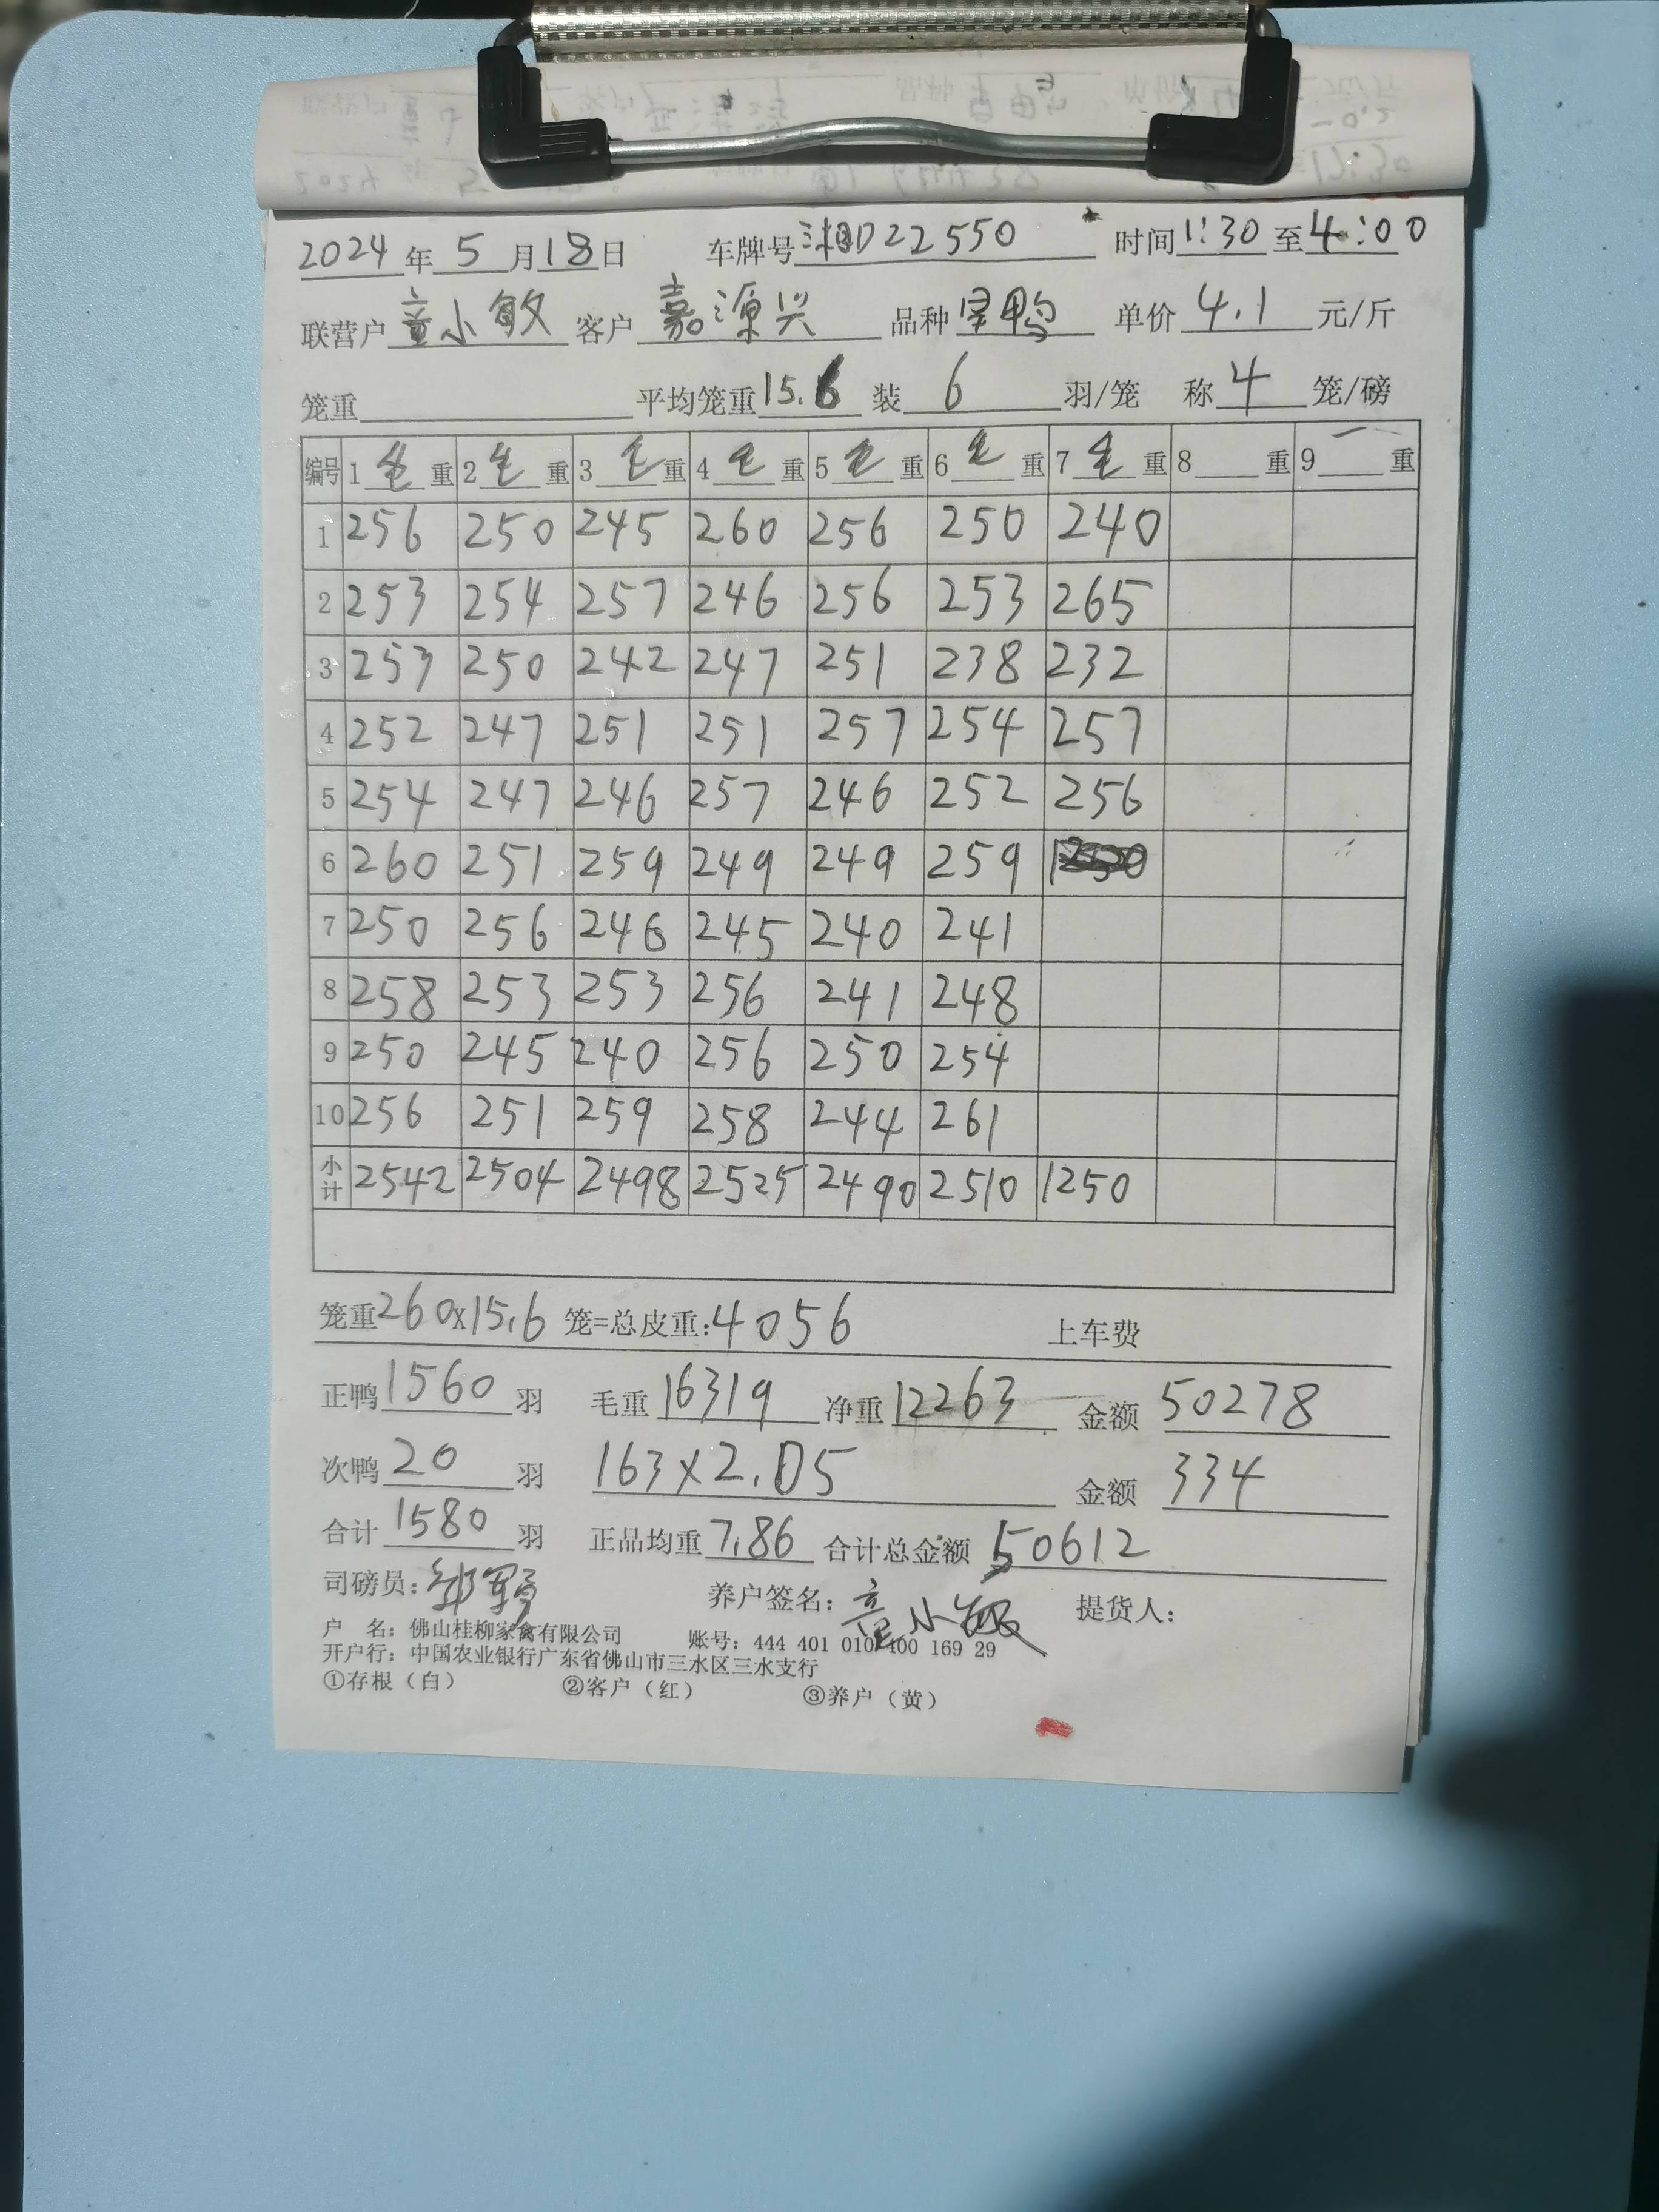 2024年5月18日 车牌号湘D22550 时间1:30至4:00
联营户童小敏 客户嘉源兴 品种宰鸭 单价4.1元/斤
笼重 平均笼重15.6 装6羽/笼 称4笼/磅
编号 1毛重 2毛重 3毛重 4毛重 5毛重 6毛重 7毛重 8重 9重
1 256 250 245 260 256 250 240
2 253 254 257 246 256 253 265
3 253 250 242 247 251 238 232
4 252 247 251 251 257 254 257
5 254 247 246 257 246 252 256
6 260 251 259 249 249 259
7 250 256 246 245 240 241
8 258 253 253 256 241 248
9 250 245 240 256 250 254
10 256 251 259 258 244 261
小计 2542 2504 2498 2525 2490 2510 1250
笼重260x15.6笼=总皮重:4056 上车费
正鸭1560羽 毛重16319 净重12263 金额50278
次鸭20羽 163x2.05 金额334
合计1580羽 正品均重7.86 合计总金额50612
司磅员: 养户签名:童小敏 提货人:
户 名:佛山桂柳家禽有限公司 账号:444 401 010 400 169 29
开户行:中国农业银行广东省佛山市三水区三水支行
①存根(白) ②客户(红) ③养户(黄)